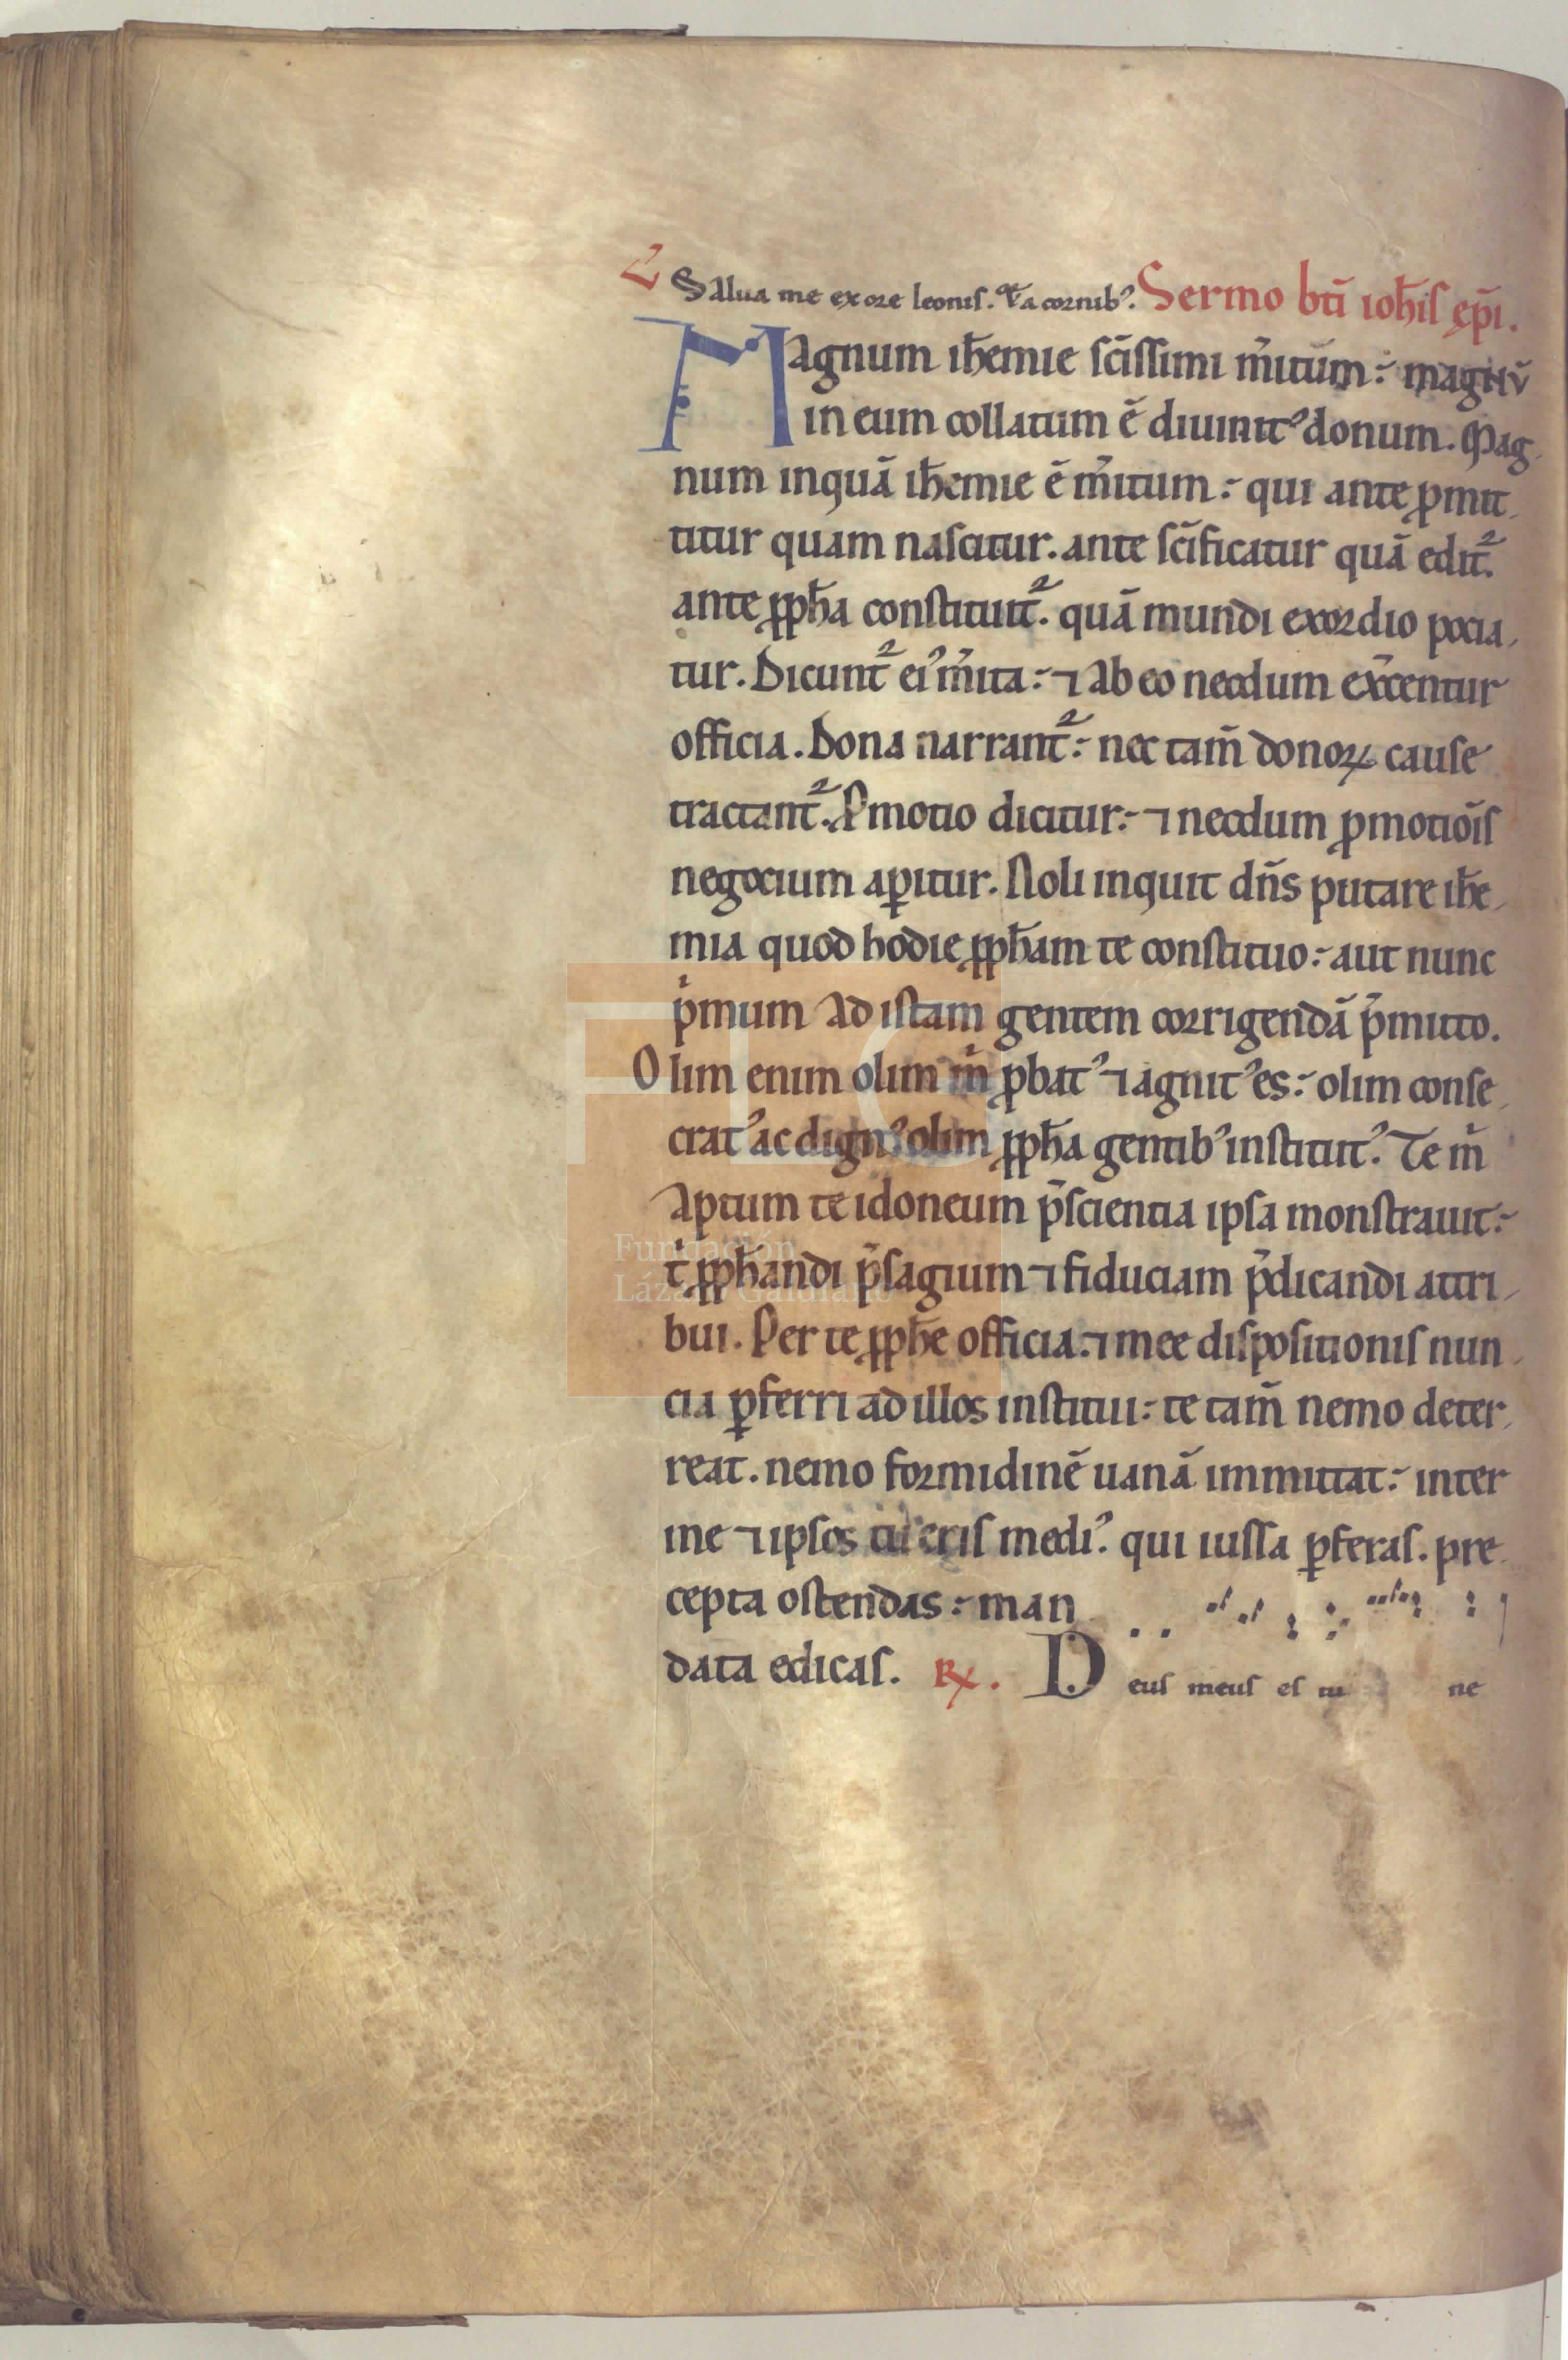 Salua me ex ore leonis. Et a cornib᾿. Sermo bti᷃ ioh̄is ep̄i.
Magnum ih̄emie sc̄issimi m̄itum: magnū
in eum collatum ē diuinit᾿ donum. Mag
num inquā ih̄emie ē m̄itum: qui ante ꝓmit
titur quam nascitur. ante sc̄ificatur quā edit̄.
ante ꝓph̄a constituit̄. quā mundi exordio pocia
tur. Dicunt̄ ei᾿ m̄ita: ⁊ ab eo necdum ex̄centur
officia. Dona narrant̄: nec tam̄ donoꝝ cause
tractant̄. Ꝓmotio dicitur: ⁊ necdum ꝓmotiōis
negocium aꝑitur. Noli inquit dn̄s putare ih̄e
mia quod hodie ꝓph̄am te constituo: aut nunc
p̄mum ad istam gentem corrigendā p̄mitto.
Olim enim olim m̄ ꝓbat᾿ ⁊ agnit᾿ es: olim conse
crat᾿ ac dign᾿ olim ꝓph̄a gentib᾿ institut᾿. Te m̄
aptum te idoneum p̄scientia ipsa monstrauit:
t̄ ꝓph̄andi p̄sagium ⁊ fiduciam p̄dicandi attri
bui. Per te ꝓph̄e officia. ⁊ mee dispositionis nun
cia ꝑferri ad illos institui: te tam̄ nemo deter
reat. nemo formidinē uanā immittat: inter
me ⁊ ipsos tu eris medi᾿. qui iussa ꝑferas. pre
cepta ostendas: man
data edicas. ℟. Deus meus es tu ne
Fundación
Lázaro Galdiano
FLG